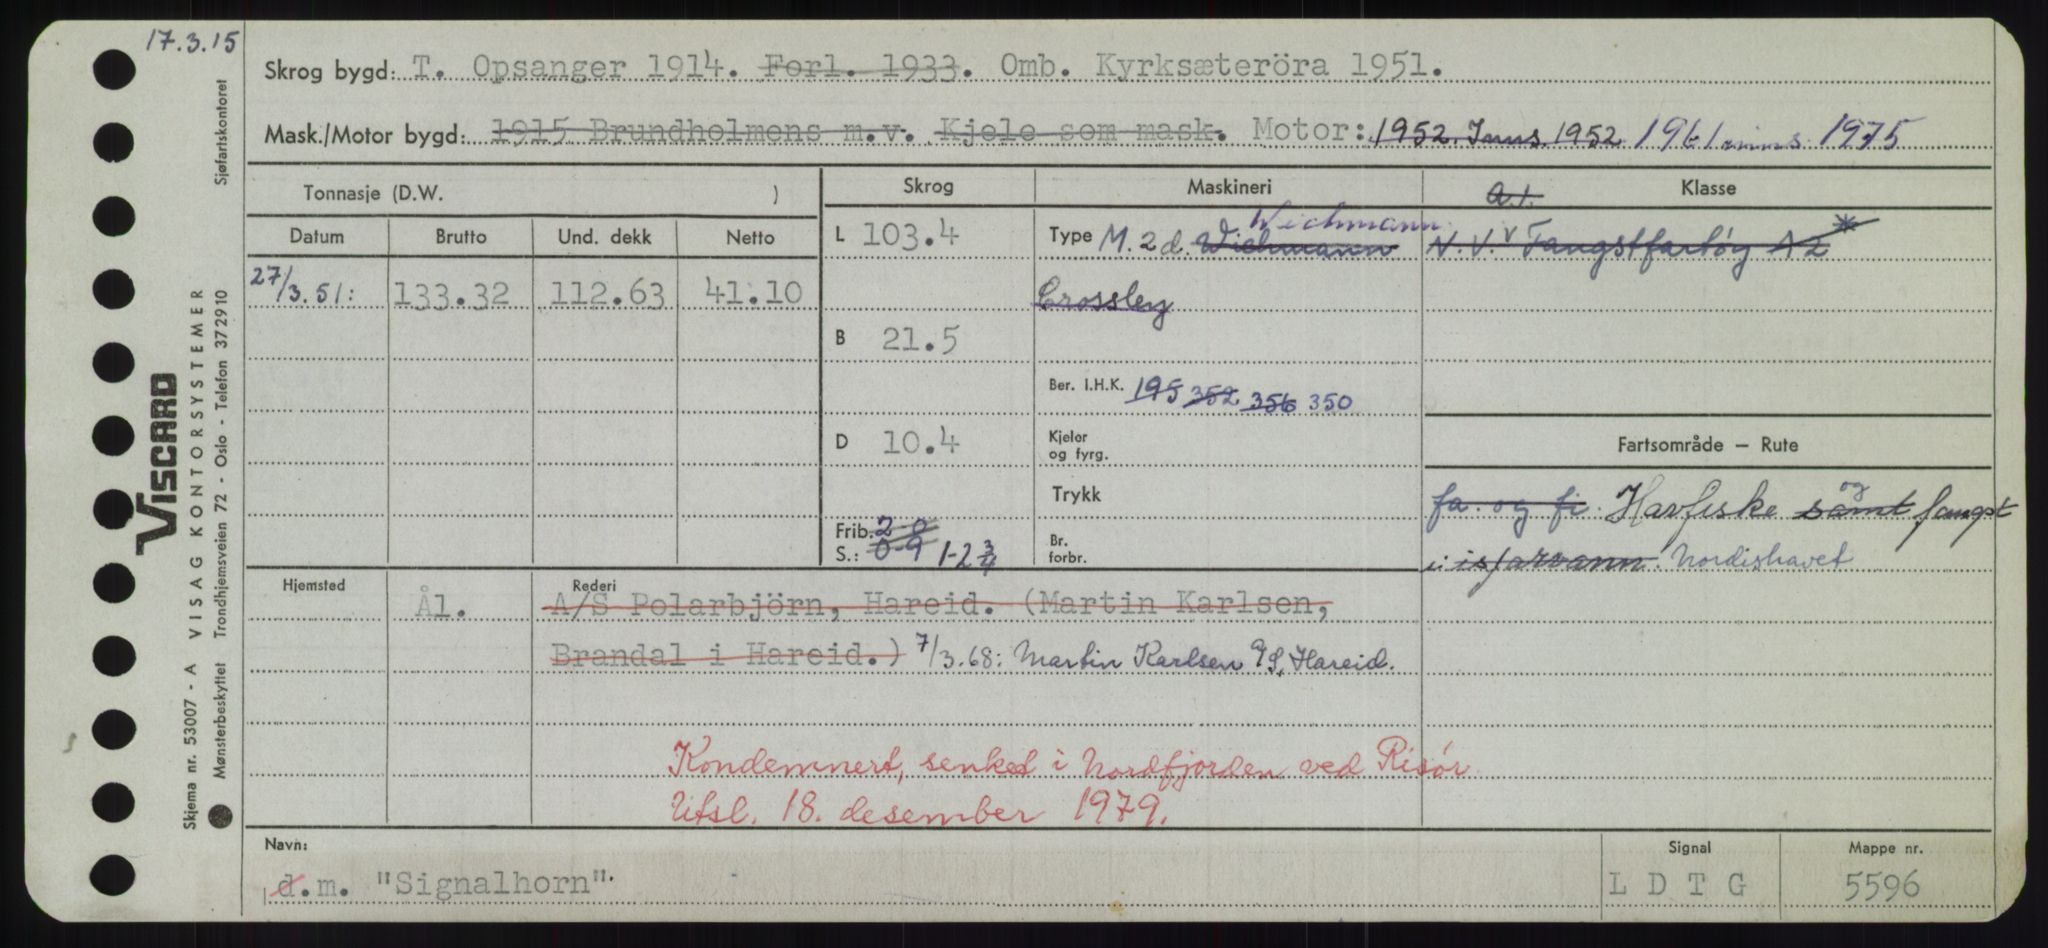 17.3.15
Skrog bygd: T. Opsanger 1914. Forl. 1933. Omb. Kyrksæteröra 1951.
Mask./Motor bygd: 1915 Brundholmens m.v. Kjele som mask. Motor: 1952. Inns. 1952 1961 inns. 1975
Tonnasje (D.W. )
Datum Brutto Und. dekk Netto
27/3.51: 133.32 112.63 41.10
Skrog
L 103.4
B 21.5
D 10.4
Frib. 2-0
S.: 0-9 1-2 3/4
Maskineri
Wichmann
Type M. 2 d. Wichmann
Crossley
Ber. I.H.K. 195 352 356 350
Kjeler
og fyrg.
Trykk
Br.
forbr.
a.1. Klasse
N.V. v Fangstfartøy A2 *
Fartsområde – Rute
fa. og fi. Havfiske samt og fangst
i isfarvann. Nordishavet
Hjemsted Ål.
Rederi
A/S Polarbjörn, Hareid. (Martin Karlsen,
Brandal i Hareid.) 7/3.68: Martin Karlsen A/S, Hareid.
Kondemnert, senket i Nordfjorden ved Risør
Utsl. 18. desember 1979.
Navn:
d.m. "Signalhorn".
Signal
L D T G
Mappe nr.
5596
Sjøfartskontoret
VISCARD
VISAG KONTORSYSTEMER
Trondhjemsveien 72 - Oslo - Telefon 372910
Skjema nr. 53007 - A
Mønsterbeskyttet